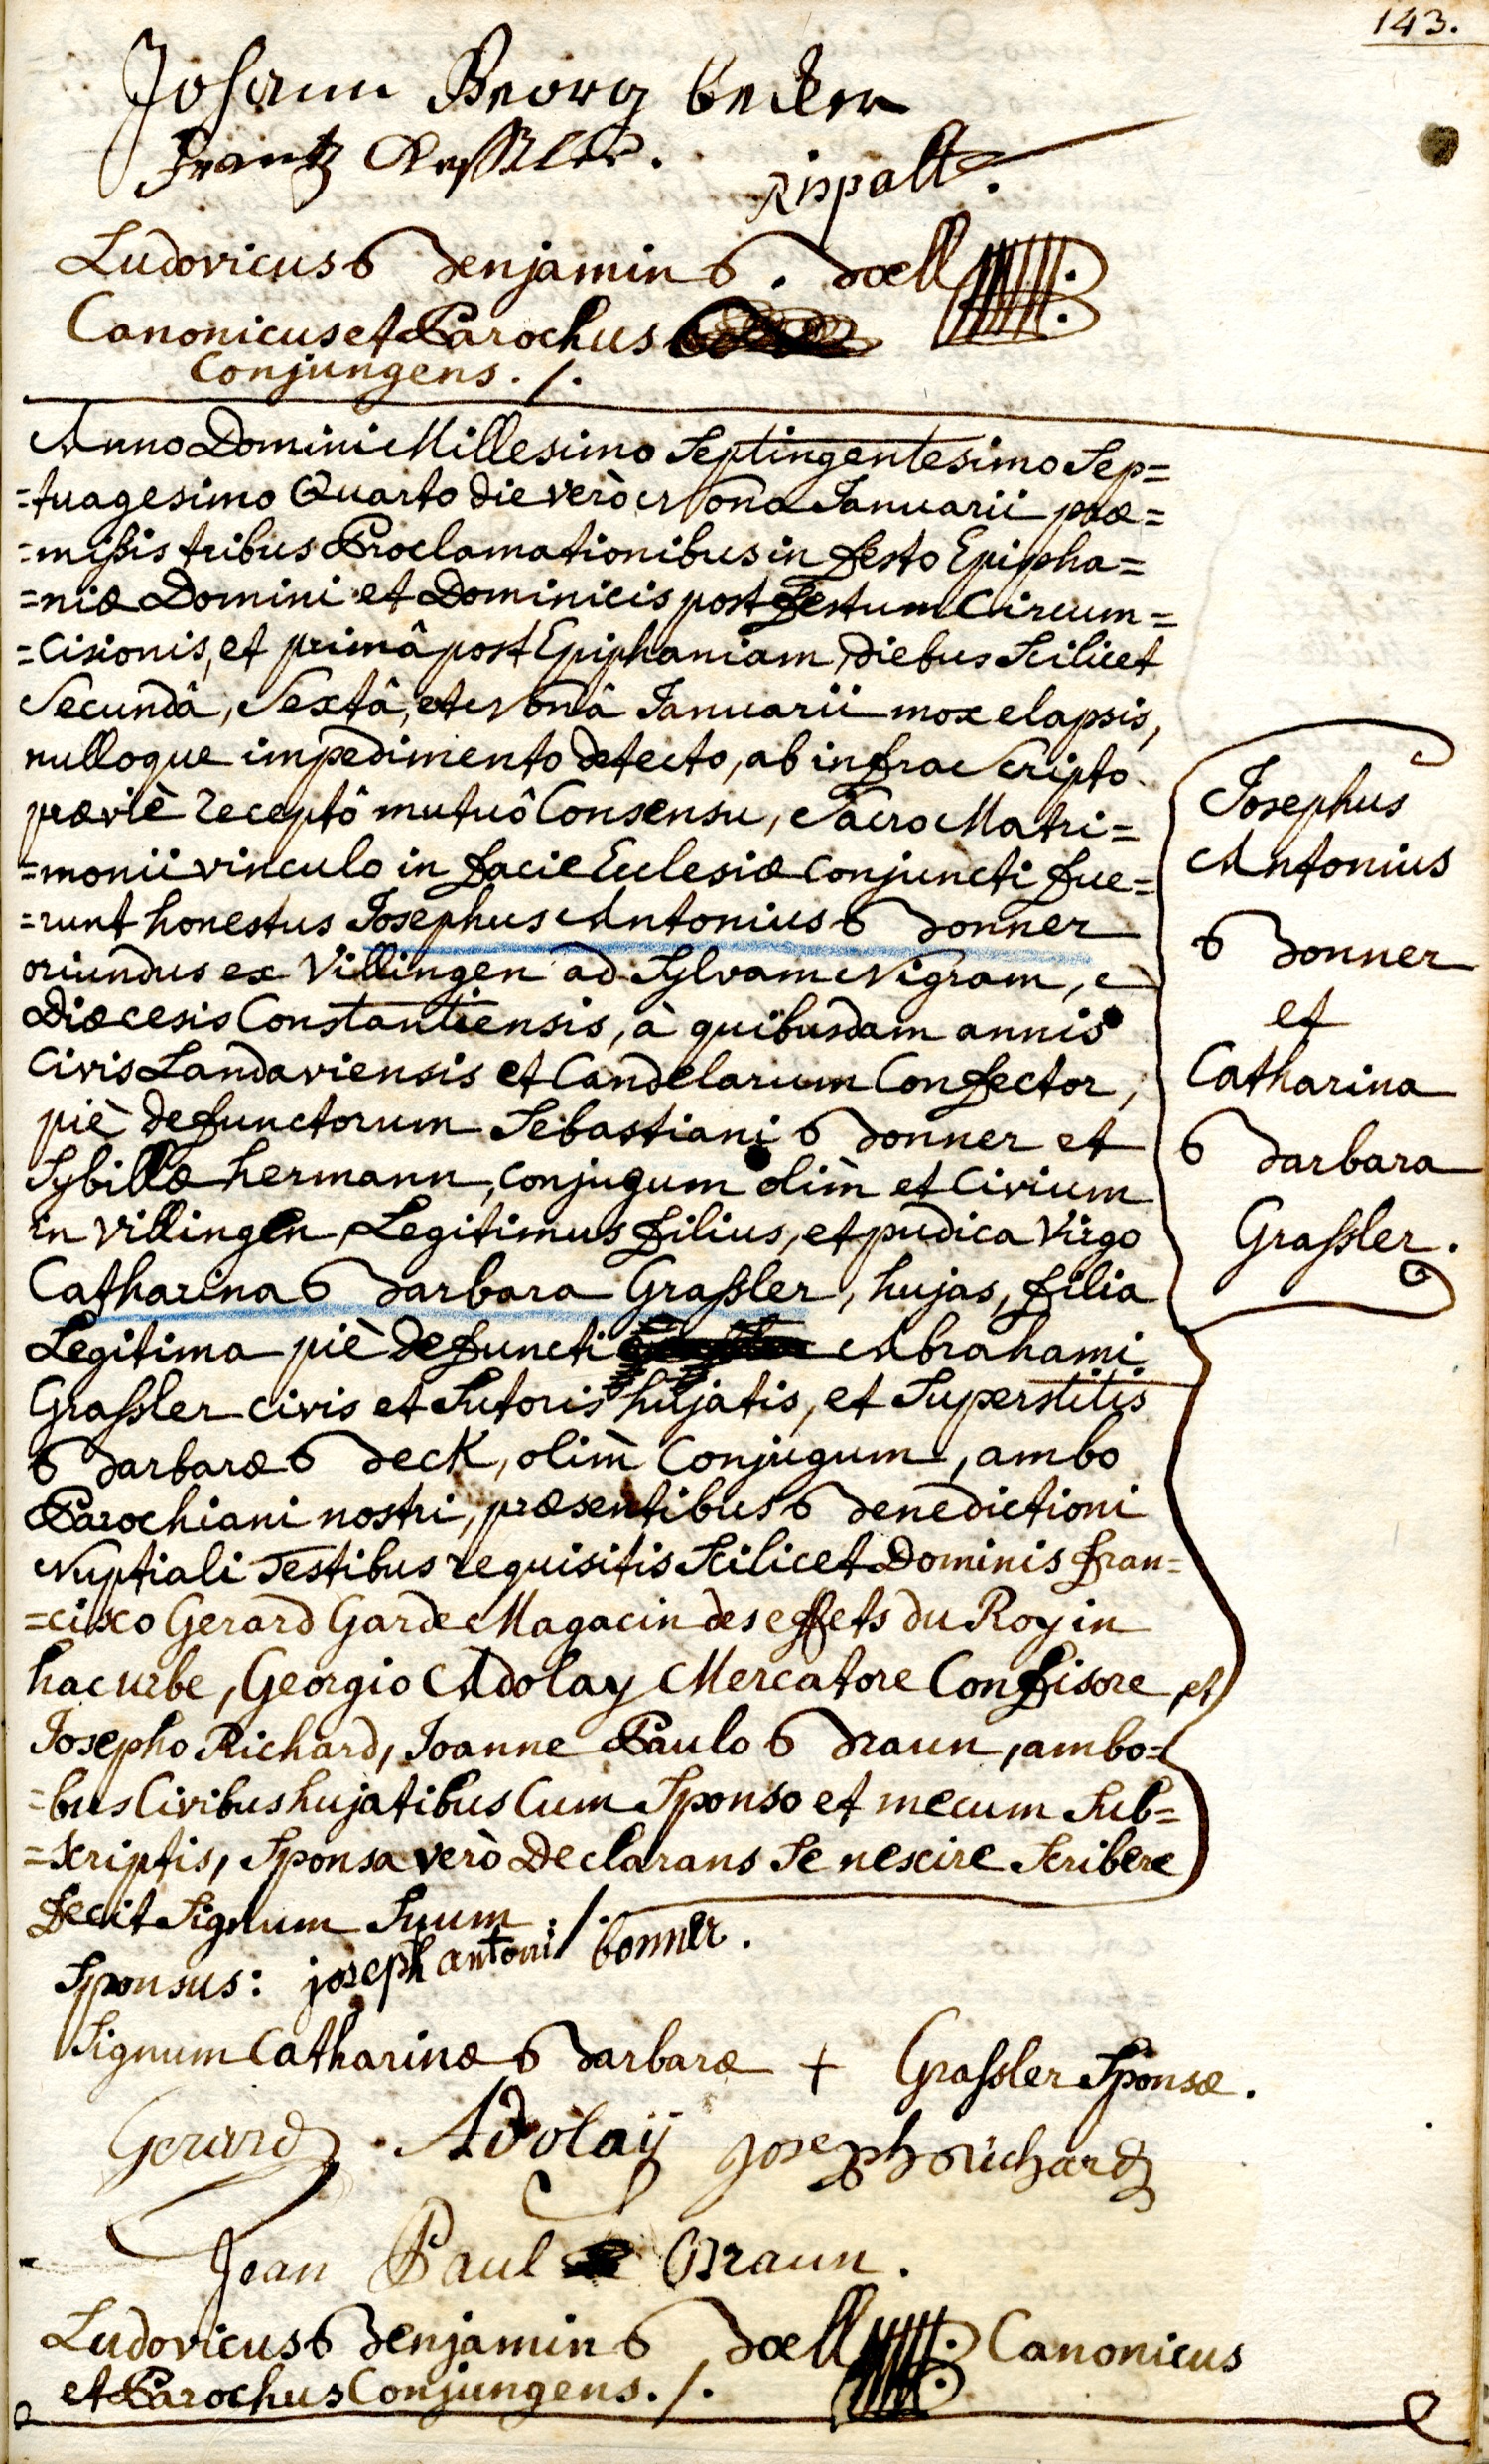 143.
Johann Georg Becker
Frantz Kessler.
Rispalt.
Ludovicus Benjamin Boell
Canonicus et Parochus
Conjungens ./.
Anno Domini Millesimo Septingentesimo Sep=
=tuagesimo Quarto die verò Nona Januarii præ=
=missis tribus Proclamationibus in festo Epipha=
=niæ Domini et Dominicis post festum Circum=
=cisionis, et primâ post Epiphaniam, diebus Scilicet
Secundâ, Sextâ, et Nonâ Januarii mox elapsis,
nulloque impedimento detecto, ab infra Scripto
præviè receptô mutuô Consensu, Sacro Matri=
=monii vinculo in facie Ecclesiæ conjuncti fue=
=runt honestus Josephus Antonius Bonner
oriundus ex Villingen ad Sylvam Nigram,
Diæcesis Constantiensis, à quibusdam annis
Civis Landaviensis et Candelarum Confector,
piè defunctorum Sebastiani Bonner et
Sybillæ hermann, conjugum olim et Civium
in Villingen, Legitimus filius, et pudica Virgo
Catharina Barbara Grassler, hujas, filia
Legitima piè defuncti Abrahami
Grassler civis et Sutoris hujatis, et Superstitis
Barbaræ Beck, olim Conjugum, ambo
Parochiani nostri, præsentibus Benedictioni
Nuptiali Testibus requisitis Scilicet Dominis fran=
=cisco Gerard Garde Magacin des effets du Roy in
hac urbe, Georgio Adolay Mercatore Confisore et
Josepho Richard, Joanne Paulo Braun, ambo=
=bus Civibus hujatibus Cum Sponso et mecum Sub=
=scriptis, Sponsa verò Declarans Se nescire Scribere
fecit Signum Suum ./.
Josephus
Antonius
Bonner
et
Catharina
Barbara
Grassler.
Sponsus: joseph antoni bonner.
Signum Catharinæ Barbaræ + Grassler Sponsæ.
Gerard Adolaÿ joseph Richard
Jean Paul Braun.
Ludovicus Benjamin Boell Canonicus
et Parochus Conjungens ./.